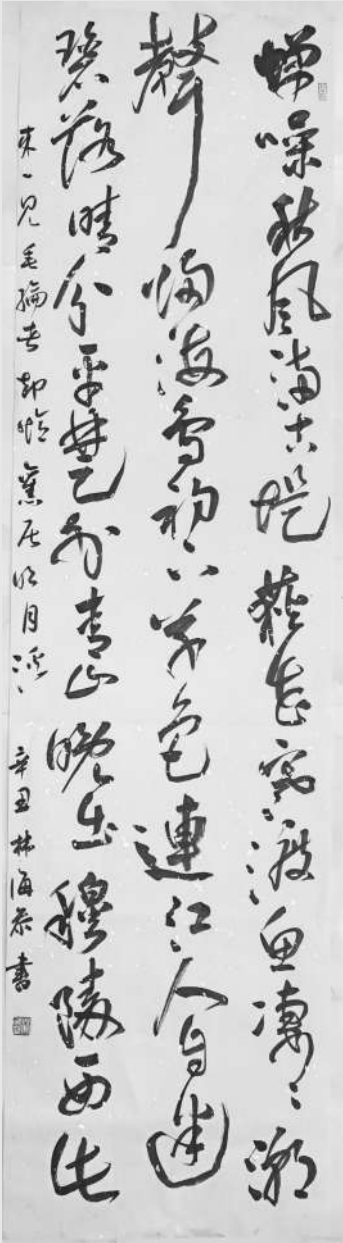 蟬噪秋風滿古堤荻花寒渡思凄〻潮
聲歸海鳥初下草色連江人自迷
碧落晴分平楚外青山晚出穆陵西此
來一見垂綸者却憶舊居明月溪 辛丑林海書